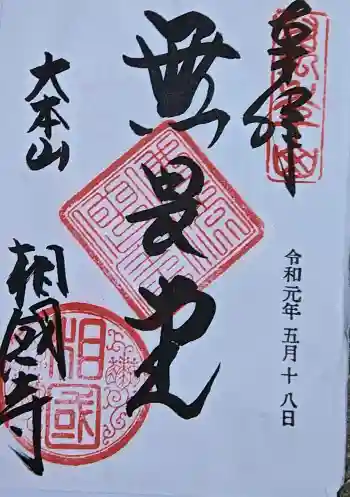 奉拝
無畏堂
令和元年五月十八日
大本山
相國寺
相国